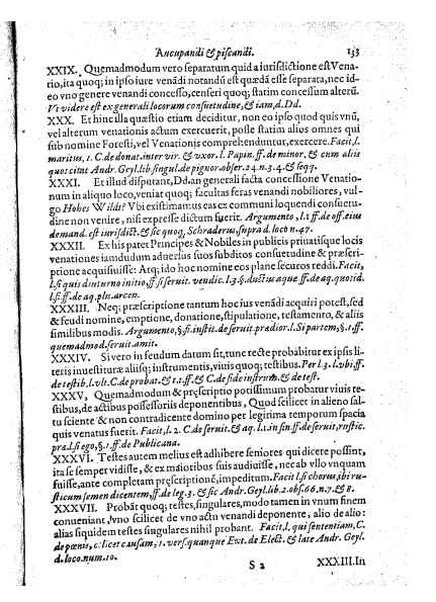 Aucupandi & piscandi. 133
XXIX. Quemadmodum vero separatum quid a iurisdictione est Vena-
tio, ita quoq; in ipso iure venādi notandū est quædā esse separata, nec id-
eo vno genere venandi concesso, censeri quoq; statim concessum alterū.
Vi videre est ex generali locorum consuetudine, & iam, d. Dd.
XXX. Et hinc illa quæstio etiam deciditur, non eo ipso quod quis vnū,
vel alterum venationis actum exercuerit, posse statim alios omnes qui
sub nomine Foresti, vel Venationis comprehenduntur, exercere. Facit, l.
maritus, 1. C. de donat. inter vir. & vxor. l. Papin. ff. de minor, & cum aliis
quos citat Andr. Geyl. lib. singul. de pignor. obser. 24. n. 3. 4. & seqq.
XXXI. Et illud disputant, Dd. an generali facta concessione Venatio-
num in aliquo loco, veniat quoq; facultas feras venandi nobiliores, vul-
go Hohes Wildt? Vbi existimamus eas ex communi loquendi consuetu-
dine non venire, nisi expresse dictum fuerit. Argumento, l. 1. ff. de off. eius
demand. est iurisdict. & sic quoq, Schraderus, supra d. loco n. 47.
XXXII. Ex his patet Principes & Nobiles in publicis priuatisque locis
venationes iamdudum aduersus suos subditos consuetudine & præscri-
ptione acquisiuisse: Atq; ido hoc nomine eos plane securos reddi. Facit,
l. si quis diuturno initio, ff. si seruit. vendic. l. 3. §. ductus aquæ ff. de aq. quotid.
l. si ff. de aq. plu. arcen.
XXXIII. Neq; præscriptione tantum hoc ius venādi acquiri potest, sed
& feudi nomine, emptione, donatione, stipulatione, testamento, & aliis
similibus modis. Argumento, §. fi. instit. de seruit. prædior. l. Si partem, §. 1. ff.
quemadmod. seruit. amit.
XXXIV. Si vero in feudum datum sit, tunc recte probabitur ex ipsis li-
teris inuestituræ aliisq; instrumentis, viuis quoq; testibus. Per l. 3. l. vbi ff.
de testib. l. vlt. C. de probat. & t. t. ff. & C. de fide instrum. & de test.
XXXV. Quemadmodum & pręscriptio potissimum probatur viuis te-
stibus, de actibus possessoriis deponentibus, Quod scilicet in alieno sal-
tu sciente & non contradicente domino per legitima temporum spacia
quis venatus fuerit. Facit, l. 2. C. de seruit. & aq. l. 1. in fin. ff. de seruit. rustic.
præ. l. si ego, §. 1. ff. de Publiciana.
XXXVI. Testes autem melius est adhibere seniores qui dicere possint,
ita se semper vidisse, & ex maioribus suis audiuisse, nec ab vllo vnquam
fuisse, ante completam præscriptionē, impeditum. Facit l. si chorus, ibi ru-
sticum semen dicentem, ff. de leg. 3. & sic Andr. Geyl. lib. 2. obs. 66. n. 7. & 8.
XXXVII. Probāt quoq; testes, singulares, modo tamen in vnum finem
conueniant, vno scilicet de vno actu venandi deponente, alio de alio:
alias siquidem testes singulares nihil probant. Facit, l. qui sententiam, C.
de pœnis, c. licet causam, 1. vers. quanque Ext. de Elect. & late Andr. Geyl.
d. loco num. 10.
S 2 XXXIII. In